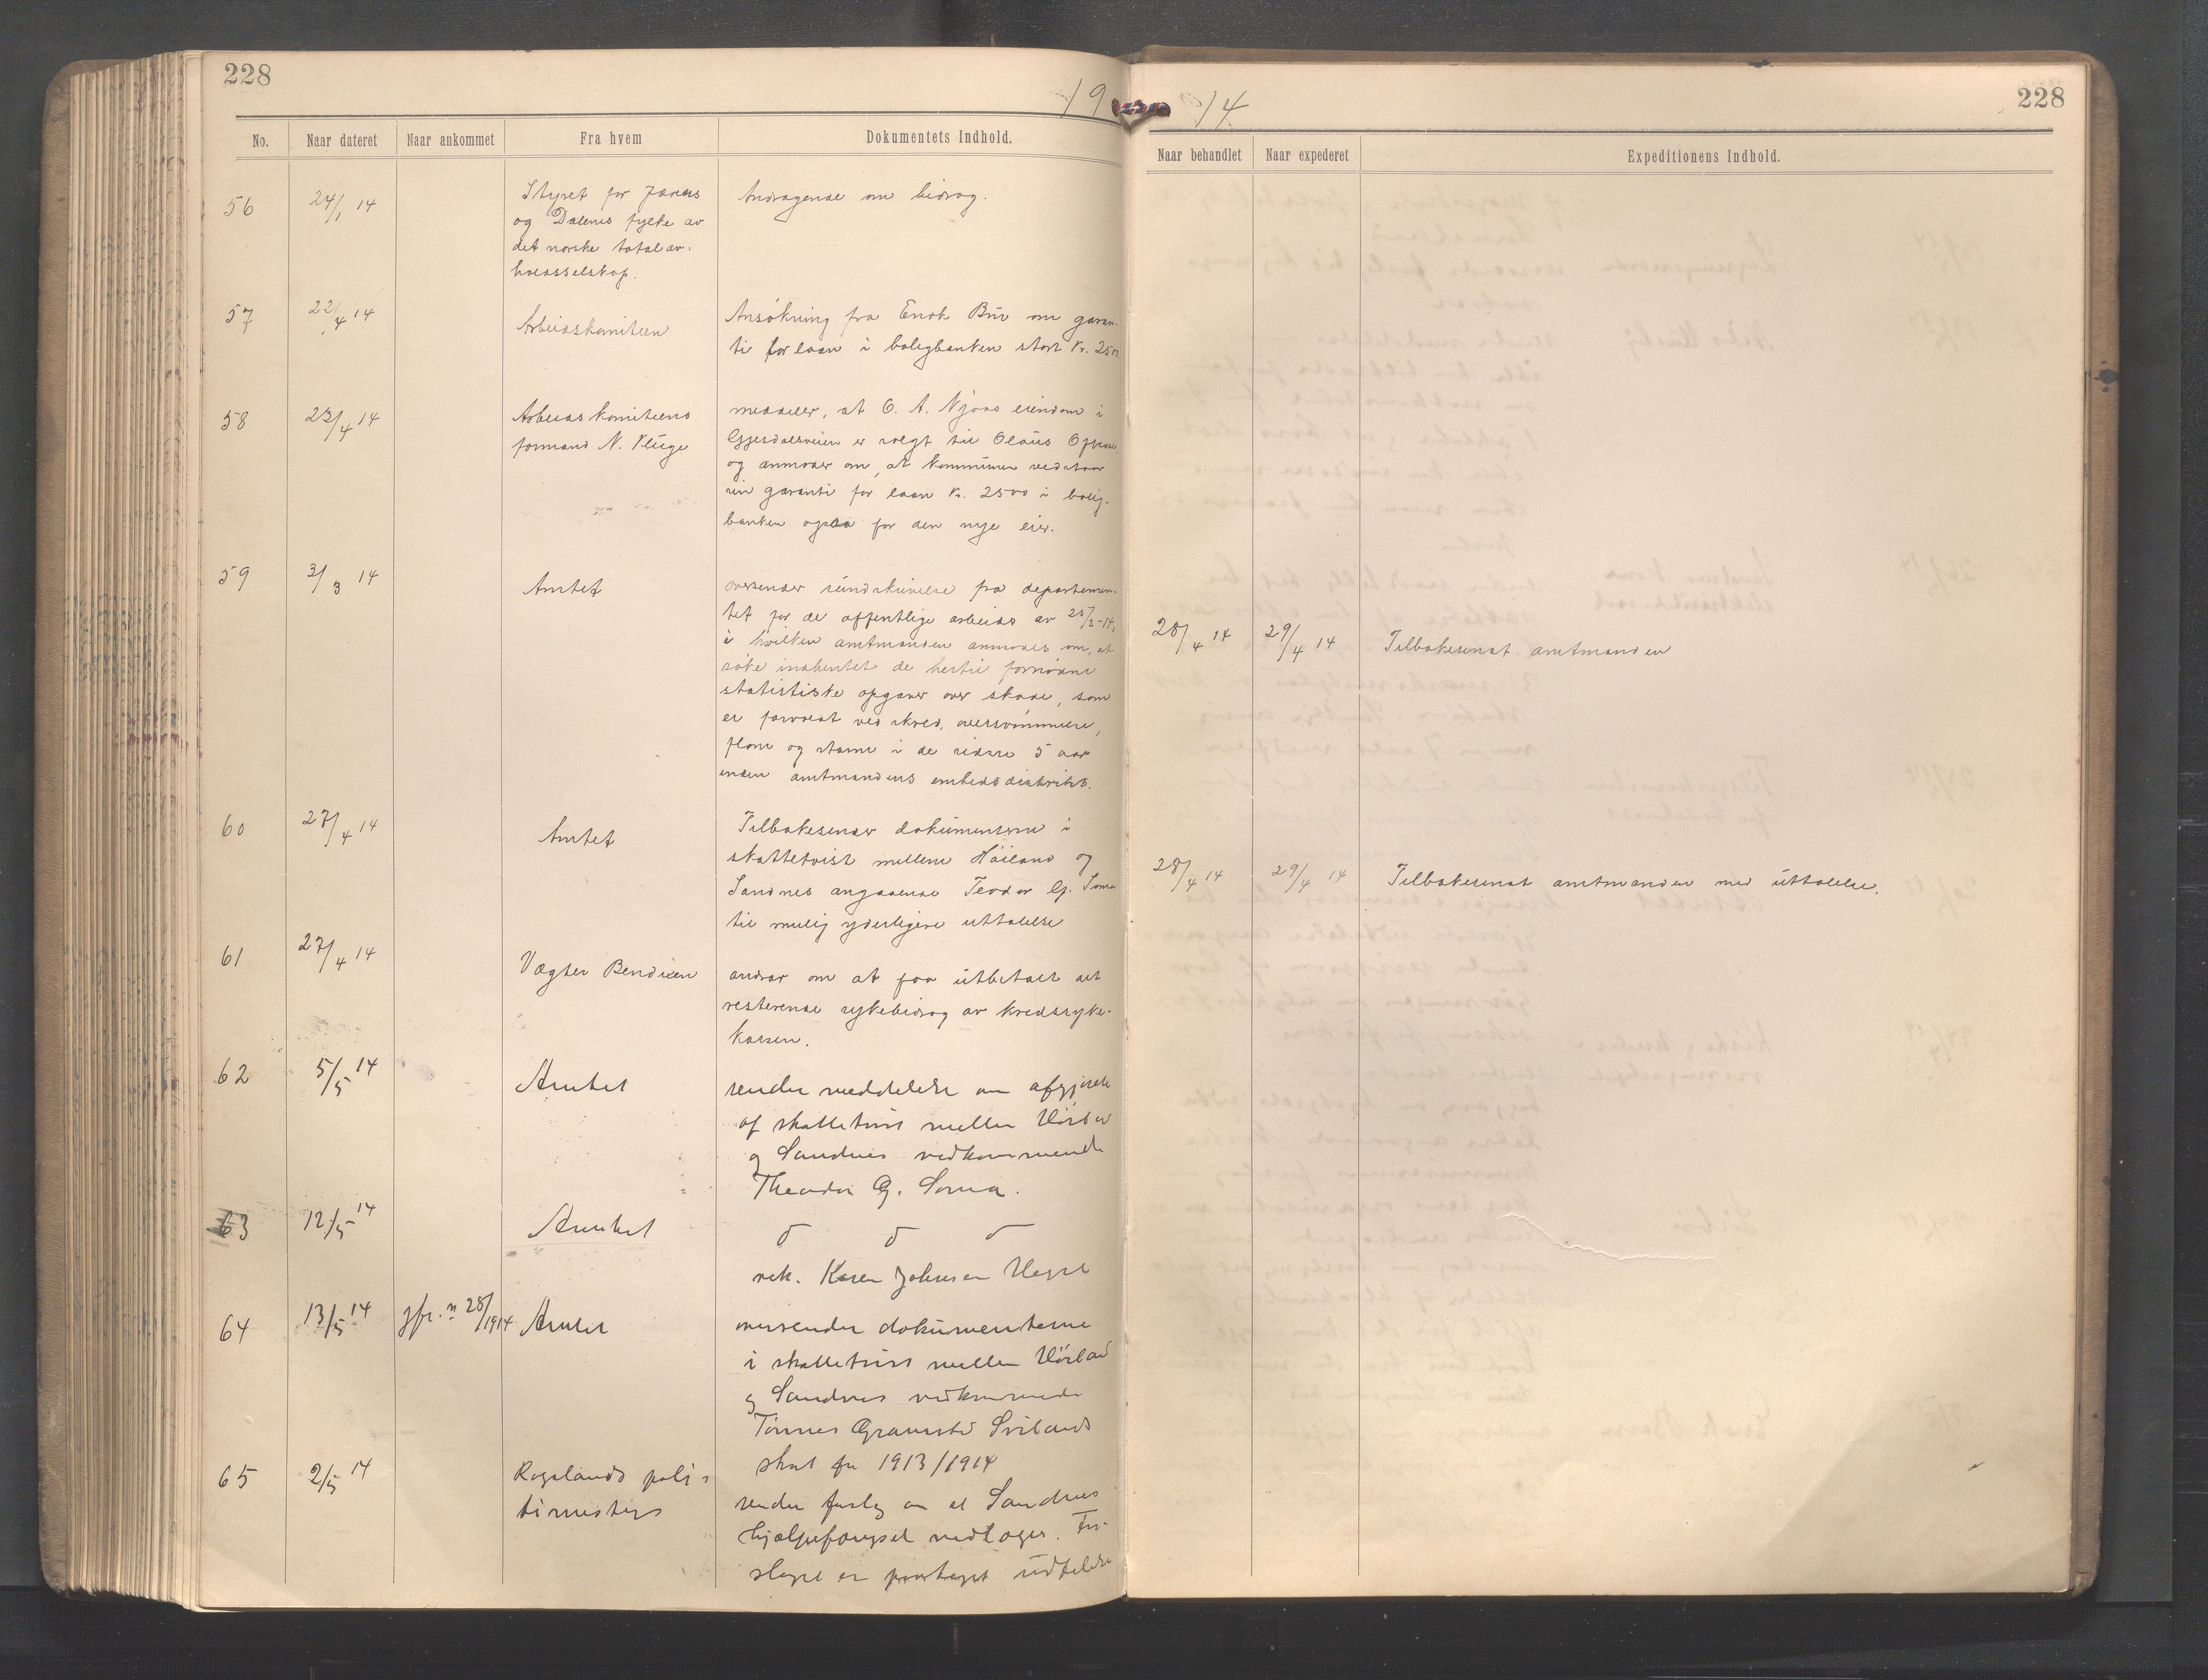 228
19
14
228
No.
Naar dateret
Naar ankommet
Fra hvem
Dokumentets Indhold.
Naar behandlet
Naar expederet
Expeditionens Indhold.
56
24/1 14
Styret for Jæren
og Dalenes fylke av
det norske totalav-
holdsselskap.
Andragende om bidrag.
57
22/4 14
Arbeidskomiteen
Ansökning fra Enok Bue om garan-
ti for laan i boligbanken stort Kr. 2500
58
23/4 14
Arbeidskomiteens
formand N. Kluge
meddeler, at O. A. Njaas eiendom i
Gjesdalsveien er solgt til Olaus
og anmoder om, at kommunen vedstaar
sin garanti for laan Kr. 2500 i bolig-
banken ogsaa for den nye eier.
59
3/3 14
Amtet
oversender rundskrivelse fra departemen-
tet for de offentlige arbeider av 25/2-14,
i hvilken amtmanden anmodes om, at
söke indhentet de hertil fornödne
statistiske opgaver over skade, som
er forvoldt ved skred, oversvömmelse,
flom og storm i de sidste 5 aar
inden amtmandens embedsdistrikt.
28/4 14
29/4 14
Tilbakesendt amtmanden
60
27/4 14
Amtet
Tilbakesender dokumenterne i
skattetvist mellem Höiland og
Sandnes angaaende Teodor G. Soma
til mulig yderligere uttalelse
28/4 14
29/4 14
Tilbakesendt amtmanden med uttalelse.
61
27/4 14
Vægter Bendixen
andrar om at faa utbetalt det
resterende sykebidrag av kredssyke-
kassen.
62
5/5 14
Amtet
sender meddelelse om afgjörelse
af skattetvist mellem
og Sandnes vedkommende
Theodor G. Soma.
63
12/5 14
Amtet
vedk. Karen Johnsen
64
13/5 14
jfr. n 28/1914
Amtet
oversender dokumenterne
i skattetvist mellem
og Sandnes vedkommende
Tönnes Gramstad Svilands
skat for 1913/1914
65
2/5 14
Rogalands poli-
timester
sender forslag om at Sandnes
hjælpefængsel nedlæges. For-
slaget er udtalelse